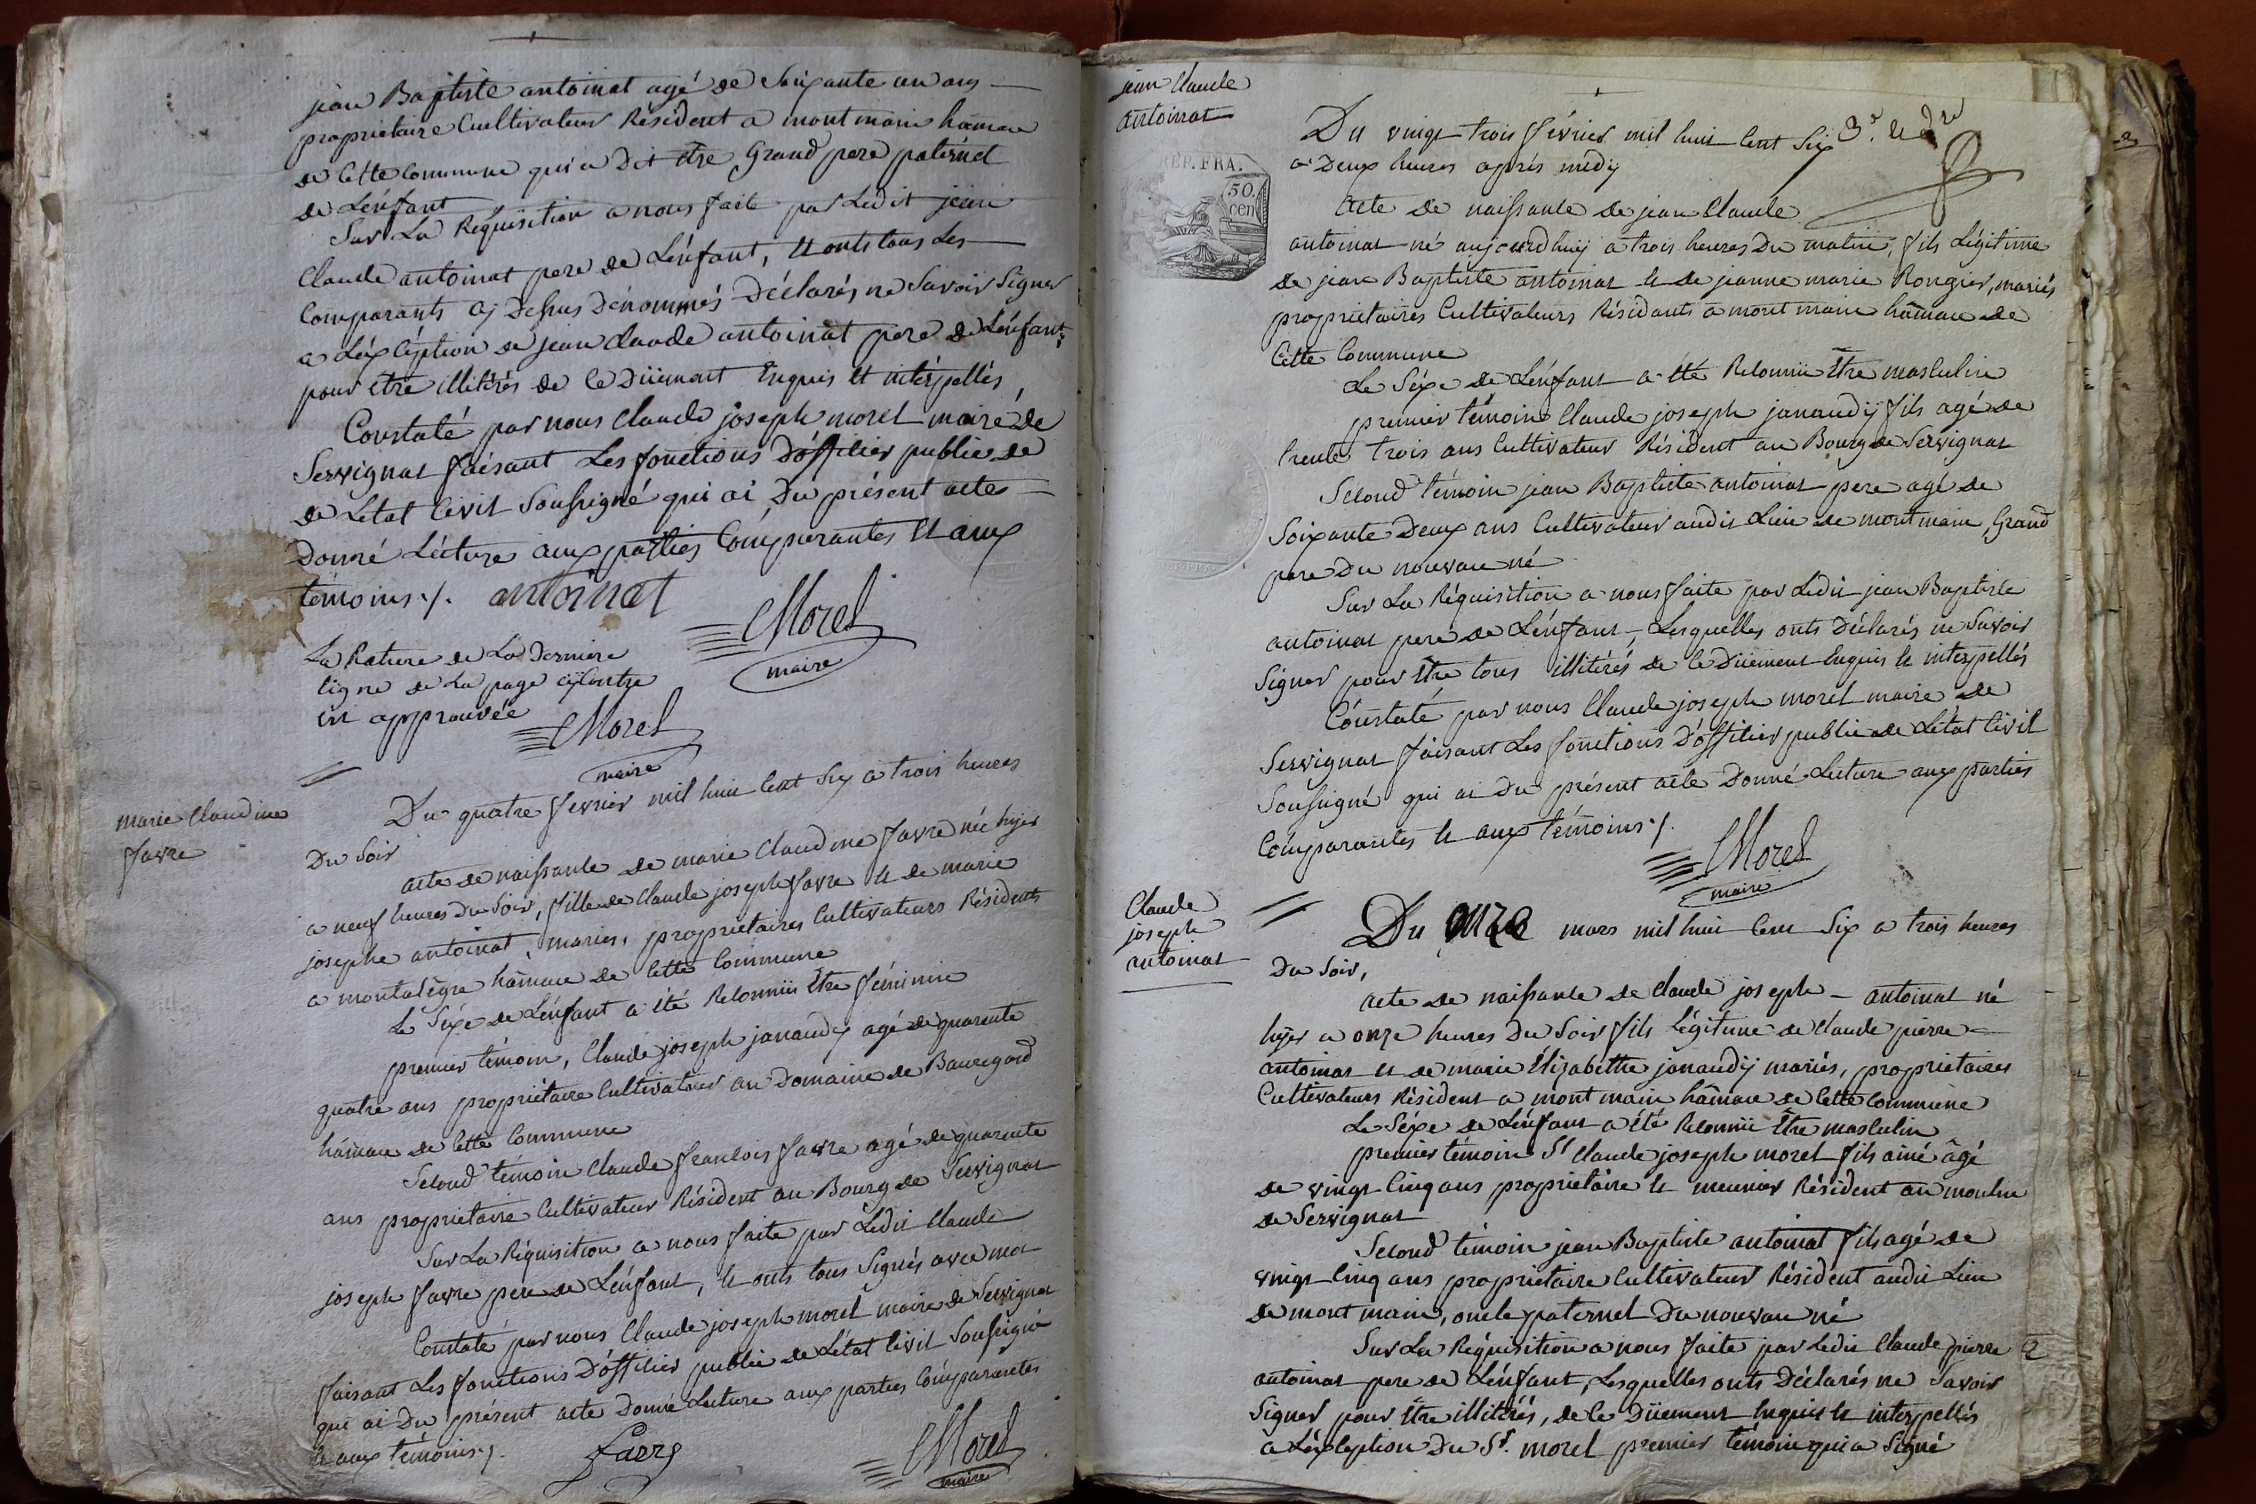 jean Baptiste antoinat agé de Soixante un ans
propriétaire Cultivateur Résident a mont main hâmau
de Cétte Commune qui a Dit être Grand pere paternel
de L'énfant
Sur La Réquisition a nous faite par Ledit jean
Claude antoinat pere de L'énfant, et onts tous Les
Comparants cy Dessus Dénommés Déclarés ne Savoir Signer
a L'éxcéption de jean claude antoinat pere de L'énfant,
pour être illitérés de ce Düement Enquis et intérpellés,
Constaté par nous Claude joseph morel maire de
Servignat faisant Les fonctions D'officier public de
de L'état Civil Soussigné qui ai Du présent acte
Donné Lécture aux parties Comparantes et aux
témoins ./. antoinat
Morel
maire
La Rature de La Derniere
ligne de La page cy Contre
est approuvée
Morel
maire
marie Claudine
favre
Du quatre fevrier mil huit Cent Six a trois heures
Du Soir
acte de naissante de marie Claudine favre née hyer
a neuf heures Du Soir, fille de Claude joseph favre et de marie
josephe antoinat, mariés, propriétaires Cultivateurs Résidents
a montalègre hâmau de Cétte Commune
Le Séxe de L'énfant a été Reconnü Etre féminin
premier témoin, Claude joseph janaudy agé de quarente
quatre ans propriétaire Cultivateur au Domaine de Bauregard
hâmau de Cétte Commune
Second témoin Claude françois favre agé de quarente
ans propriétaire Cultivateur Résident au Bourg de Servignat
Sur La Réquisition a nous faite par Ledit Claude
joseph favre pere de L'énfant, et onts tous Signés avec moi
Constaté par nous Claude joseph morel maire de Servignat
faisant Les fonctions D'officier public de L'état Civil Soussigné
qui ai Du présent acte Donné Lécture aux parties Comparantes
et aux témoins ./. favre
Morel
maire
jean Claude
antoinat
REP. FRA.
50.
cen
Du vingt trois février mil huit Cent Six
a Deux heures après midy
acte de naissante de jean Claude
antoinat né aujourd'huy a trois heures Du matin, fils Légitime
de jean Baptiste antoinat et de jeanne marie Rongier, mariés
propriétaires Cultivateurs Résidants a mont main hâmau de
Cétte Commune
Le Séxe de L'énfant a été Reconnü Etre masculin
premier témoin Claude joseph janaudy fils agé de
trente trois ans Cultivateur Résident au Bourg de Servignat
Second témoin jean Baptiste antoinat pere agé de
Soixante Deux ans Cultivateur audit Lieu de mont main, Grand
pere Du nouvau né
Sur La Réquisition a nous faite par Ledit jean Baptiste
antoinat pere de L'énfant, Lesquelles onts Déclarés ne Savoir
Signer pour Etre tous illitérés, de ce Düement Enquis et interpellés
Constaté par nous Claude joseph morel maire de
Servignat faisant Les fonctions D'officier public de L'état Civil
Soussigné qui ai Du présent acte Donné Lécture aux parties
Comparantes et aux témoins ./.
Morel
maire
Claude
joseph
antoinat
Du onze mars mil huit Cent Six a trois heures
Du Soir,
acte de naissante de claude joseph antoinat né
hyer a onze heures Du Soir fils légitime de claude pierre
antoinat et de marie Elizabéthe janaudy mariés, propriétaires
Cultivateurs Résident a mont main hâmau de Cétte Commune
Le Séxe de L'énfant a été Reconnü Etre masculin
premier témoin Sr Claude joseph morel fils ainé âgé
de vingt Cinq ans propriétaire et meunier Résident au moulin
de Servignat
Second témoin jean Baptiste antoinat fils agé de
vingt Cinq ans propriétaire Cultivateur Résident audit Lieu
de mont main, oncle paternel Du nouvau né
Sur La Réquisition a nous faite par Ledit Claude pierre
antoinat pere de L'énfant, Lesquelles onts Déclarés ne Savoir
Signer pour Etre illitérés, de ce Düement Enquis et interpellés
a L'éxcéption Du Sr. morel premier témoin qui a Signé